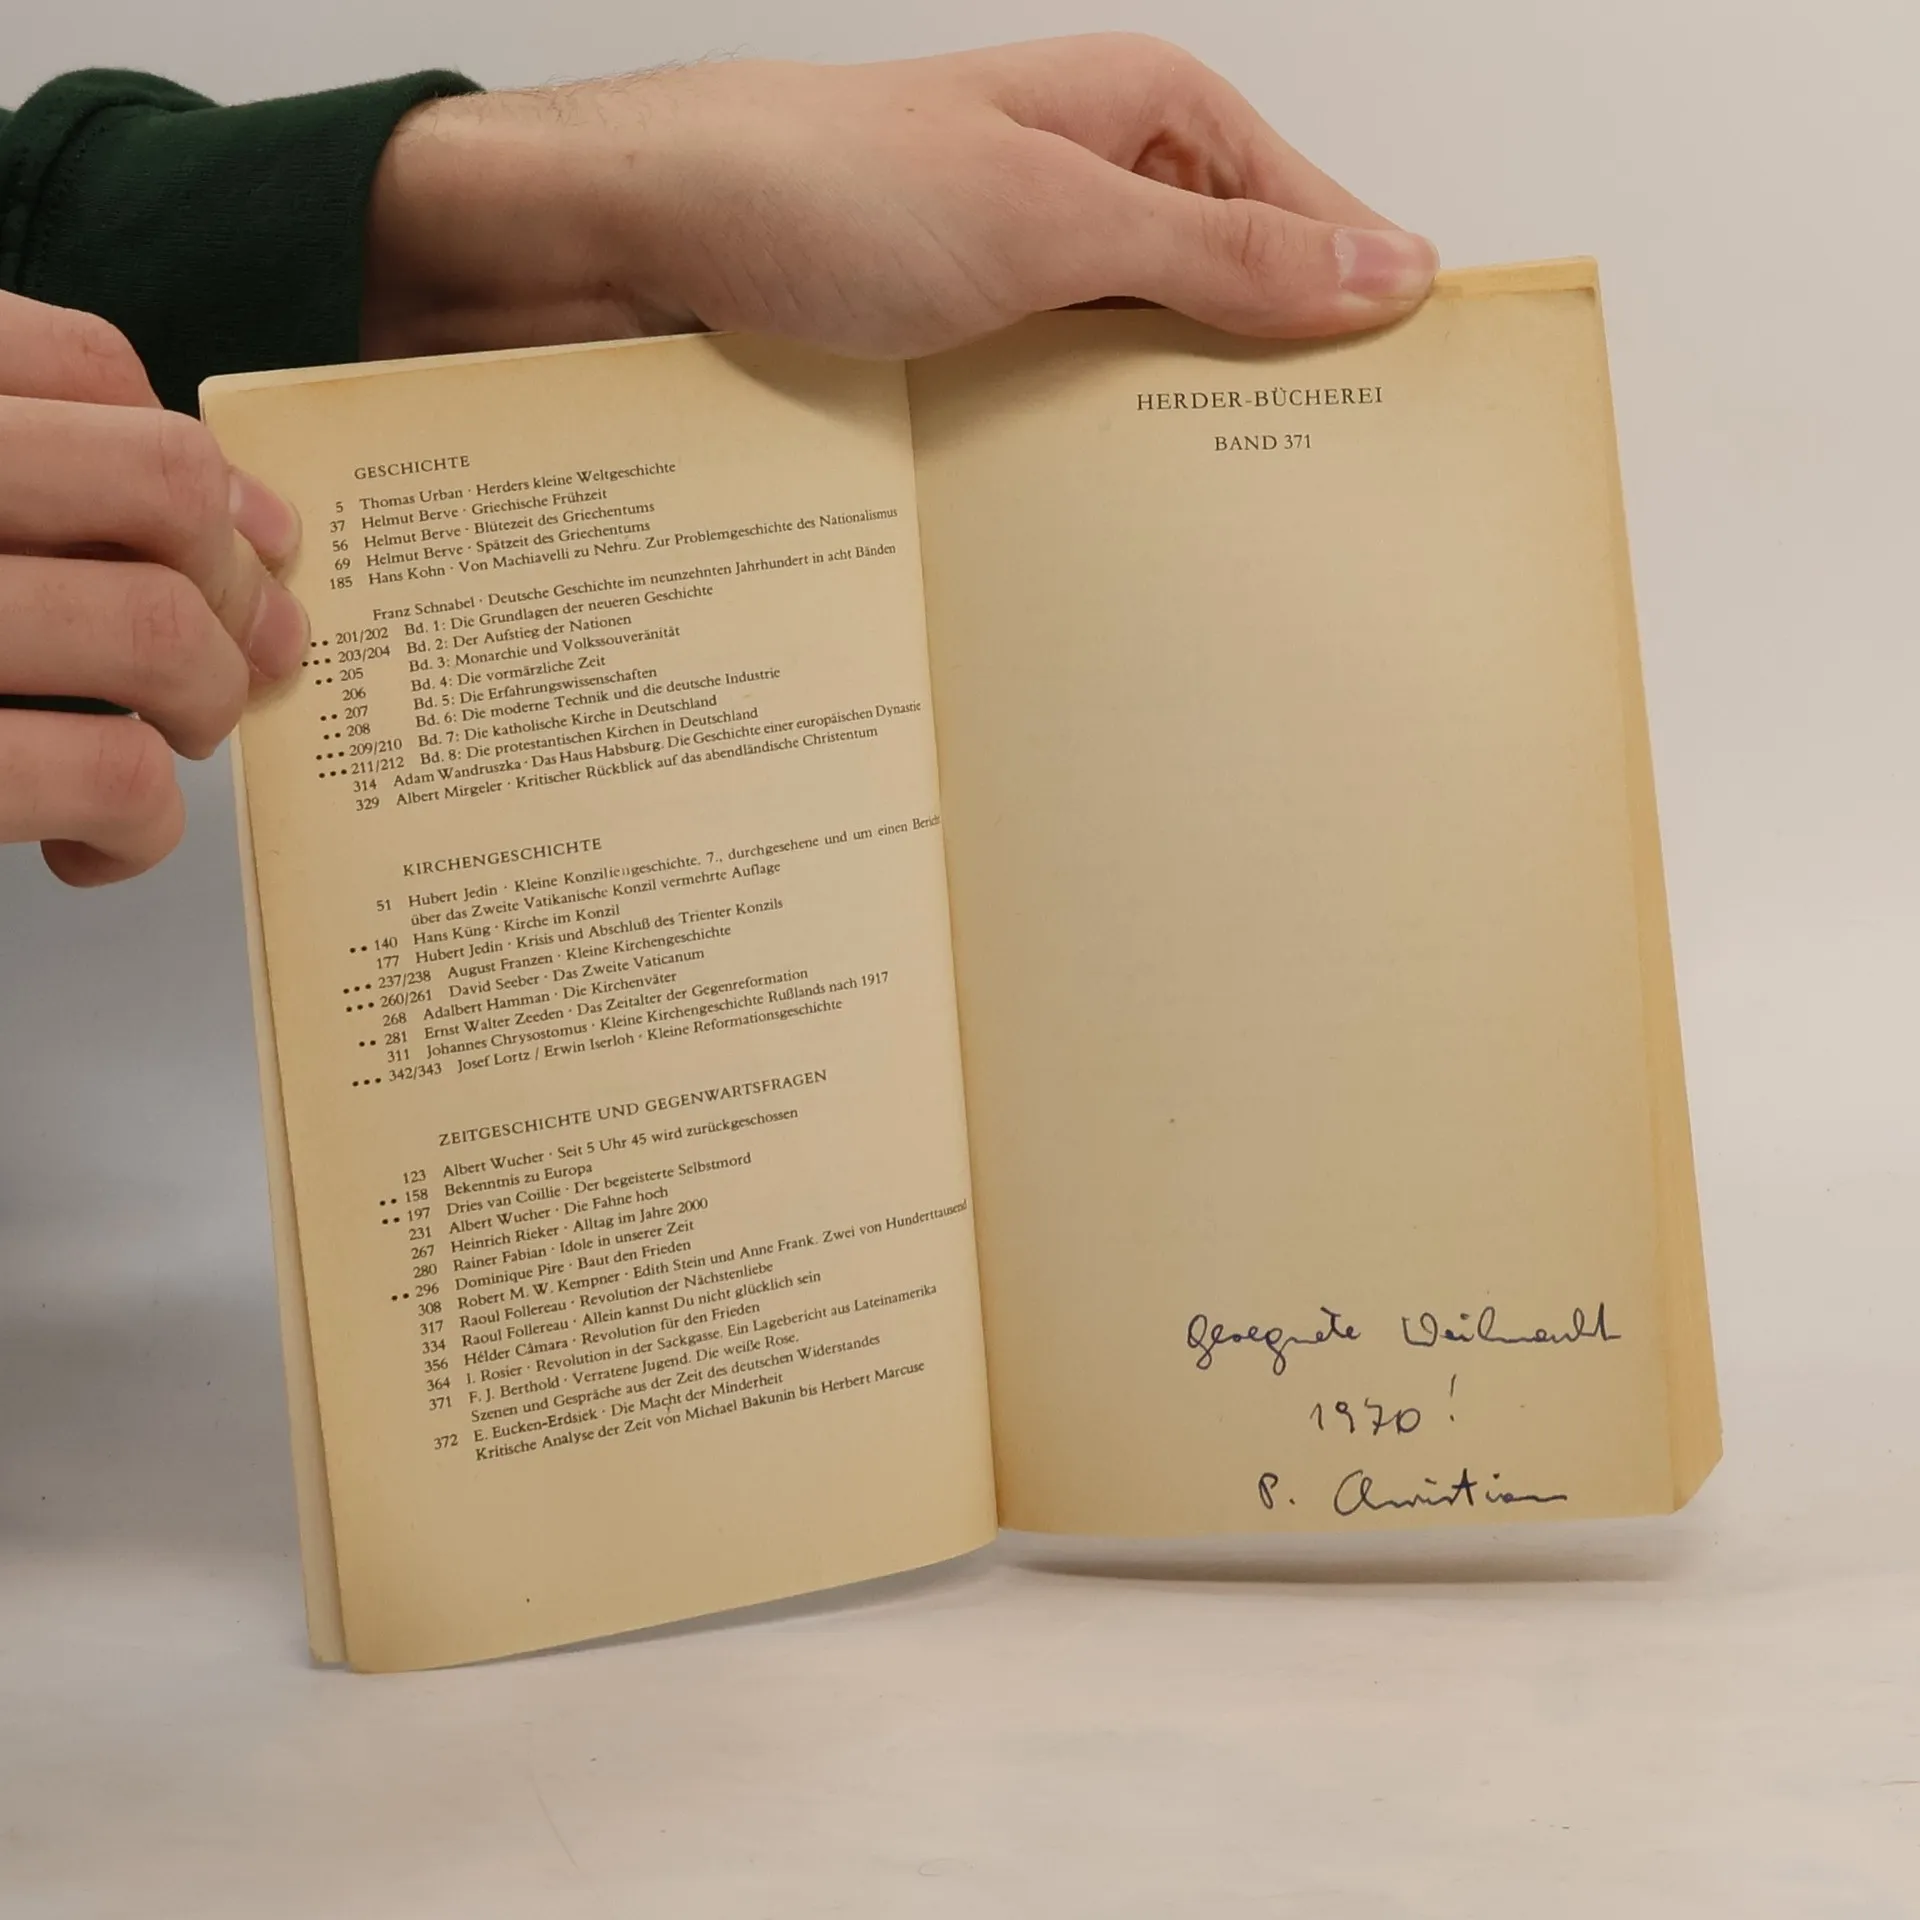 GESCHICHTE
5 Thomas Urban · Herders kleine Weltgeschichte
37 Helmut Berve · Griechische Frühzeit
56 Helmut Berve · Blütezeit des Griechentums
69 Helmut Berve · Spätzeit des Griechentums
185 Hans Kohn · Von Machiavelli zu Nehru. Zur Problemgeschichte des Nationalismus
Franz Schnabel · Deutsche Geschichte im neunzehnten Jahrhundert in acht Bänden
•• 201/202 Bd. 1: Die Grundlagen der neueren Geschichte
••• 203/204 Bd. 2: Der Aufstieg der Nationen
•• 205 Bd. 3: Monarchie und Volkssouveränität
206 Bd. 4: Die vormärzliche Zeit
•• 207 Bd. 5: Die Erfahrungswissenschaften
•• 208 Bd. 6: Die moderne Technik und die deutsche Industrie
••• 209/210 Bd. 7: Die katholische Kirche in Deutschland
••• 211/212 Bd. 8: Die protestantischen Kirchen in Deutschland
314 Adam Wandruszka · Das Haus Habsburg. Die Geschichte einer europäischen Dynastie
329 Albert Mirgeler · Kritischer Rückblick auf das abendländische Christentum
KIRCHENGESCHICHTE
51 Hubert Jedin · Kleine Konziliengeschichte. 7., durchgesehene und um einen Bericht
über das Zweite Vatikanische Konzil vermehrte Auflage
•• 140 Hans Küng · Kirche im Konzil
177 Hubert Jedin · Krisis und Abschluß des Trienter Konzils
••• 237/238 August Franzen · Kleine Kirchengeschichte
••• 260/261 David Seeber · Das Zweite Vaticanum
268 Adalbert Hamman · Die Kirchenväter
•• 281 Ernst Walter Zeeden · Das Zeitalter der Gegenreformation
311 Johannes Chrysostomus · Kleine Kirchengeschichte Rußlands nach 1917
••• 342/343 Josef Lortz / Erwin Iserloh · Kleine Reformationsgeschichte
ZEITGESCHICHTE UND GEGENWARTSFRAGEN
123 Albert Wucher · Seit 5 Uhr 45 wird zurückgeschossen
•• 158 Bekenntnis zu Europa
•• 197 Dries van Coillie · Der begeisterte Selbstmord
231 Albert Wucher · Die Fahne hoch
267 Heinrich Rieker · Alltag im Jahre 2000
280 Rainer Fabian · Idole in unserer Zeit
•• 296 Dominique Pire · Baut den Frieden
308 Robert M. W. Kempner · Edith Stein und Anne Frank. Zwei von Hunderttausend
317 Raoul Follereau · Revolution der Nächstenliebe
334 Raoul Follereau · Allein kannst Du nicht glücklich sein
356 Hélder Câmara · Revolution für den Frieden
364 I. Rosier · Revolution in der Sackgasse. Ein Lagebericht aus Lateinamerika
371 F. J. Berthold · Verratene Jugend. Die weiße Rose.
Szenen und Gespräche aus der Zeit des deutschen Widerstandes
372 E. Eucken-Erdsiek · Die Macht der Minderheit
Kritische Analyse der Zeit von Michael Bakunin bis Herbert Marcuse
HERDER-BÜCHEREI
BAND 371
Gesegnete Weihnacht
1970!
P. Christian